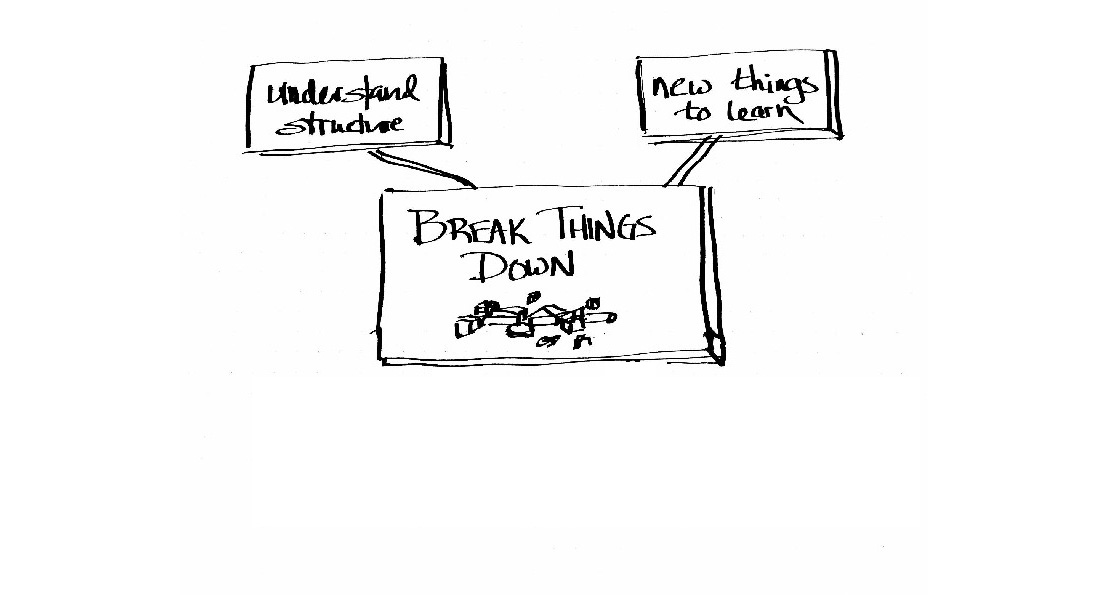 understand
structure
new things
to learn
BREAK THINGS
DOWN